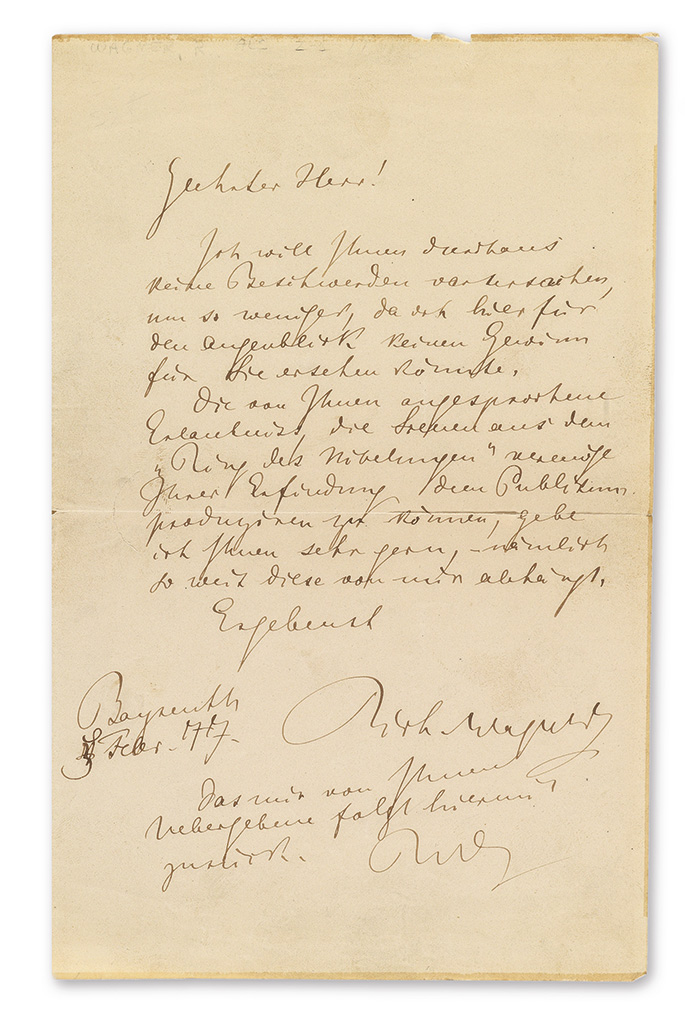 WAGNER, R
Geehrter Herr!
Ich will Ihnen durchaus
keine Beschwerden verursachen,
um so weniger, da ich hier für
den Augenblick keinen Gewinn
für Sie ersehen könnte.
Die von Ihnen angesprochene
Erlaubniss, die Scenen aus dem
„Ring des Nibelungen" vermöge
Ihrer Erfindung dem Publikum
produziren zu können, gebe
ich Ihnen sehr gern, – nämlich
so weit diese von mir abhängt.
Ergebenst
Bayreuth
Febr. 77.
Rich. Wagner
Das mir von Ihnen
Uebergebene folgt hiermit
zurück.
RW